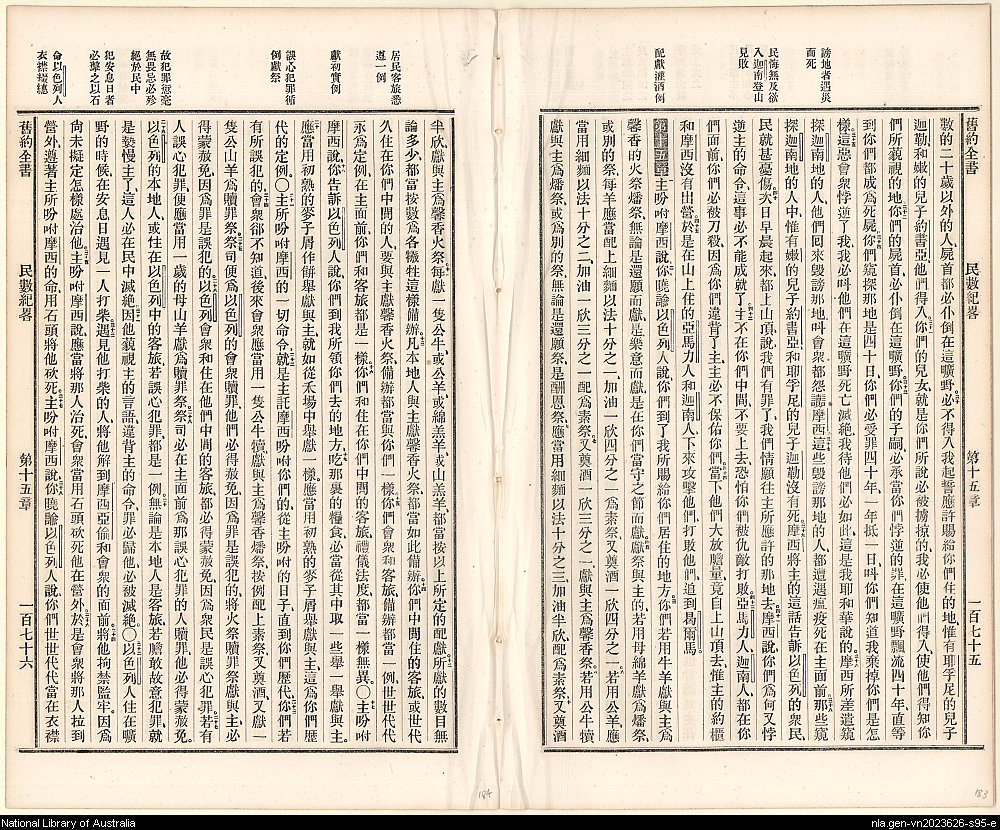 謗地者遇災
而死
民悔無及欲
入迦南登山
見敗
配獻灌酒例
舊約全書 民數紀畧 第十五章 一百七十五
數的二十歲以外的人屍首都必仆倒在這曠野必不得入我起誓應許賜給你們住的地惟有耶孚尼的兒子
迦勒和嫩的兒子約書亞他們得入你們的兒女就是你們所說必被擄掠的我必使他們得入使他們得知你
們所藐視的地你們的屍首必仆倒在這曠野你們的子嗣必承當你們悖逆的罪在這曠野飄流四十年直等
到你們都成為死屍你們窺探那地是四十日你們必受罪四十年一年抵一日呌你們知道我棄掉你們是怎
樣這惡會衆悖逆了我我必呌他們在這曠野死亡滅絕我待他們必如此這是我耶和華說的摩西所差遣窺
探迦南地的人他們囘來毀謗那地呌會衆都怨讟摩西這些毀謗那地的人都遭遇瘟疫死在主面前那些窺
探迦南地的人中惟有嫩的兒子約書亞和耶孚尼的兒子迦勒沒有死摩西將主的這話告訴以色列的衆民
民就甚憂傷次日早晨起來都上山頂說我們有罪了我們情願往主所應許的那地去摩西說你們為何又悖
逆主的命令這事必不能成就了主不在你們中間不要上去恐怕你們被仇敵打敗亞馬力人迦南人都在你
們面前你們必被刀殺因為你們違背了主主必不保佑你們當下他們大放膽量竟自上山頂去惟主的約櫃
和摩西沒有出營於是在山上住的亞馬力人和迦南人下來攻擊他們打敗他們追到曷爾馬
第十五章主吩咐摩西說你曉諭以色列人說你們到了我所賜給你們居住的地方你們若用牛獻與主為
馨香的火祭燔祭無論是還願而獻是樂意而獻或你們當守之節而獻獻祭與主的若用母綿羊獻為燔祭
或別的祭每羊應當配上細麵以法十分之一加油一欣四分之一為素祭又奠酒一欣四分之一若用公羊應
當用細麵以法十分之二加油一欣三分之一配為素祭又奠酒一欣三分之一獻與主為馨香祭若用公牛犢
獻與主為燔祭或為別的祭無論是還願祭是酬恩祭應當用細麵以法十分之三加油半欣配為素祭又奠酒
居民客旅悉
遵一例
獻初實例
誤心犯罪循
例獻祭
故犯罪愆毫
無畏忌必殄
絕於民中
犯安息日者
必擊之以石
命以色列人
衣襟綴繐
半欣獻與主為馨香火祭每獻一隻公牛或公羊或綿羔羊或山羔羊都當按以上所定的配獻所獻的數目無
論多少都當按數為各犧牲這樣備辦凡本地人與主獻馨香火祭都當如此備辦你們中間住的客旅或世代
久住在你們中間的人要與主獻馨香火祭備辦都當與你們一樣你們會衆和客旅備辦都當一例世世代代
永為定例在主面前你們和客旅都是一樣你們和住在你們中間的客旅禮儀法度都當一樣無異〇主吩咐
摩西說你告訴以色列人說你們到我所領你們去的地方吃那裏的糧食必當從其中取一些舉一舉獻與主
應當用初熟的麥子屑作餅舉獻與主就如從禾場中舉獻一樣應當用初熟的麥子屑舉獻與主這為你們歷
代的定例〇主所吩咐摩西的一切命令就是主託摩西吩咐你們的從主吩咐的日子直到你們歷代你們若
有所誤犯的會衆卻不知道後來會衆應當用一隻公牛犢獻與主為馨香燔祭按例配上素祭又奠酒又獻一
隻公山羊為贖罪祭祭司便為以色列的會衆贖罪他們必得蒙赦免因為罪是誤犯的將火祭贖罪祭獻與主必
得蒙赦免因為罪是誤犯的以色列會衆和住在他們中間的客旅都必得蒙赦免因為衆民是誤心犯罪若有
人誤心犯罪便應當用一歲的母山羊獻為贖罪祭祭司必在主面前為那誤心犯罪的人贖罪他必得蒙赦免
以色列的本地人或住在以色列中的客旅若誤心犯罪都是一例無論是本地人是客旅若膽敢故意犯罪就
是褻慢主了這人必在民中滅絕因他藐視主的言語違背主的命令罪必歸他必被滅絕〇以色列人住在曠
野的時候在安息日遇見一人打柴遇見他打柴的人將他解到摩西亞倫和會衆的面前將他拘禁監牢因為
尙未擬定怎樣處治他主吩咐摩西說應當將那人治死會衆當用石頭砍死他在營外於是會衆將那人拉到
營外遵著主所吩咐摩西的命用石頭將他砍死主吩咐摩西說你曉諭以色列人說你們世世代代當在衣襟
舊約全書 民數紀畧 第十五章 一百七十六
184
183
National Library of Australia
nla.gen-vn2023626-s95-e